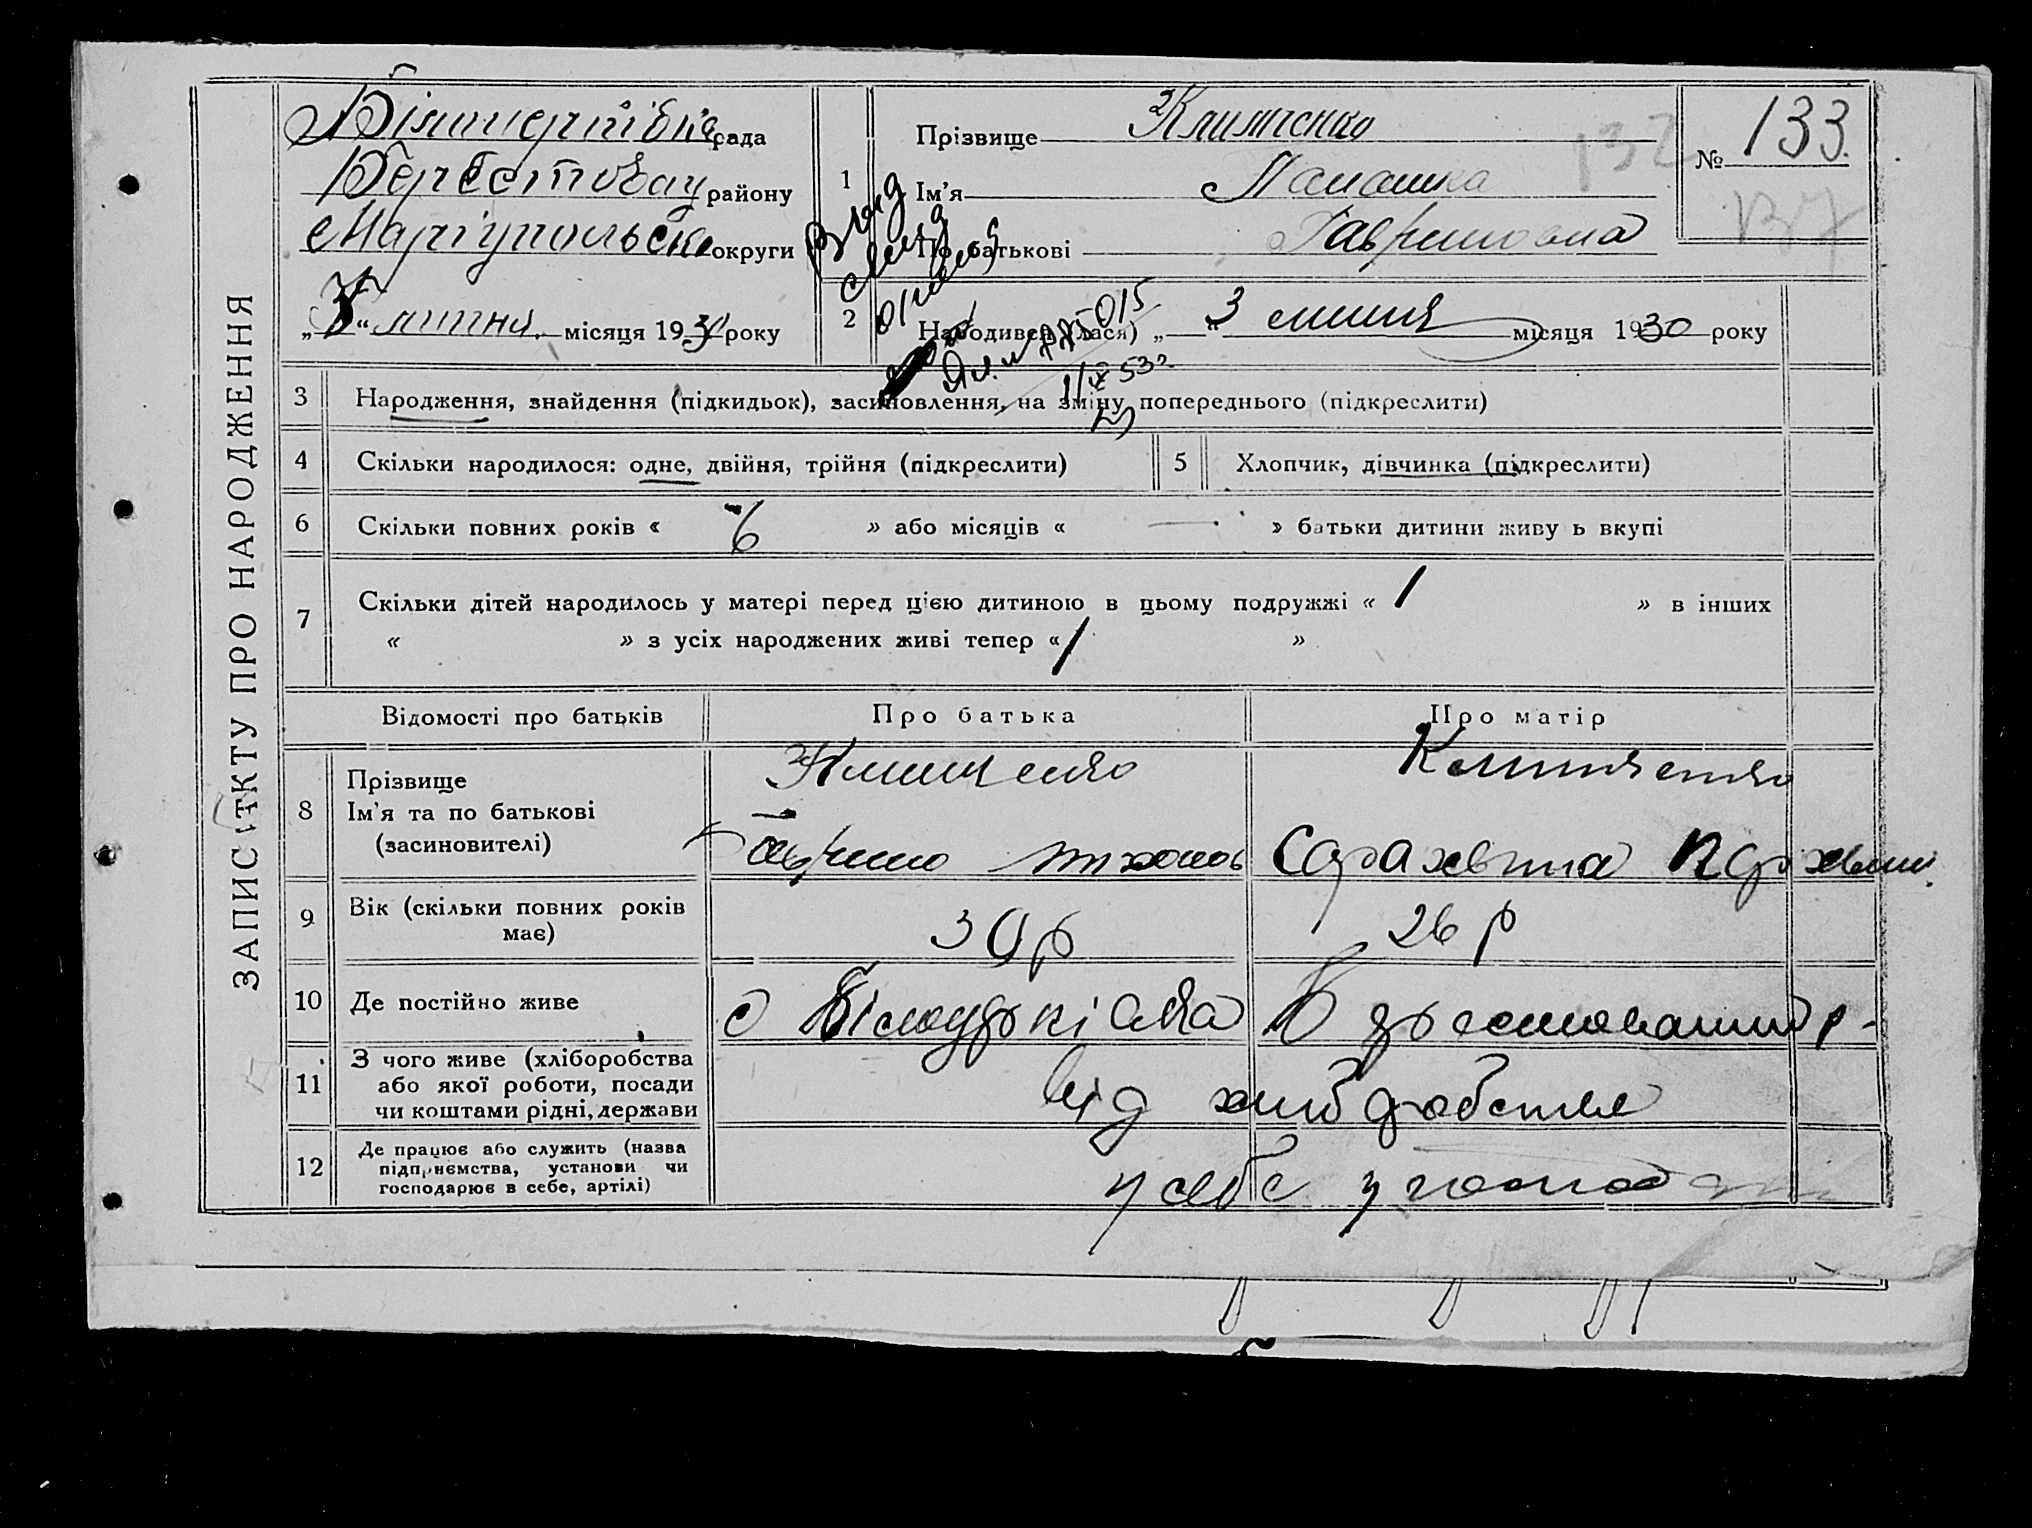 ЗАПИС АКТУ ПРО НАРОДЖЕННЯ
рада
Берестовау району
Маріупольсько округи
„3“ липня місяця 1930 року
1
Прізвище Климченко
Ім’я Палашка
По батькові Гавриловна
№ 133
132
137
2
Народивсь(лася) „3“ липня місяця 1930 року
015
3 Народження, знайдення (підкидьок), засиновлення, на зміну попереднього (підкреслити)
4 Скільки народилося: одне, двійня, трійня (підкреслити)
5 Хлопчик, дівчинка (підкреслити)
6 Скільки повних років « 6 » або місяців « — » батьки дитини живу ь вкупі
7 Скільки дітей народилось у матері перед цією дитиною в цьому подружжі « 1 » в інших
« » з усіх народжених живі тепер « 1 »
Відомості про батьків
Про батька
Про матір
8 Прізвище
Ім’я та по батькові
(засиновителі)
Климченко
Гаврило Тихонов
Климченко
9 Вік (скільки повних років
має)
30 р
26 р
10 Де постійно живе
с
р-
11 З чого живе (хліборобства
або якої роботи, посади
чи коштами рідні, держави
від хліборобства
12 Де працює або служить (назва
підприємства, установи чи
господарює в себе, артілі)
у себе у господа